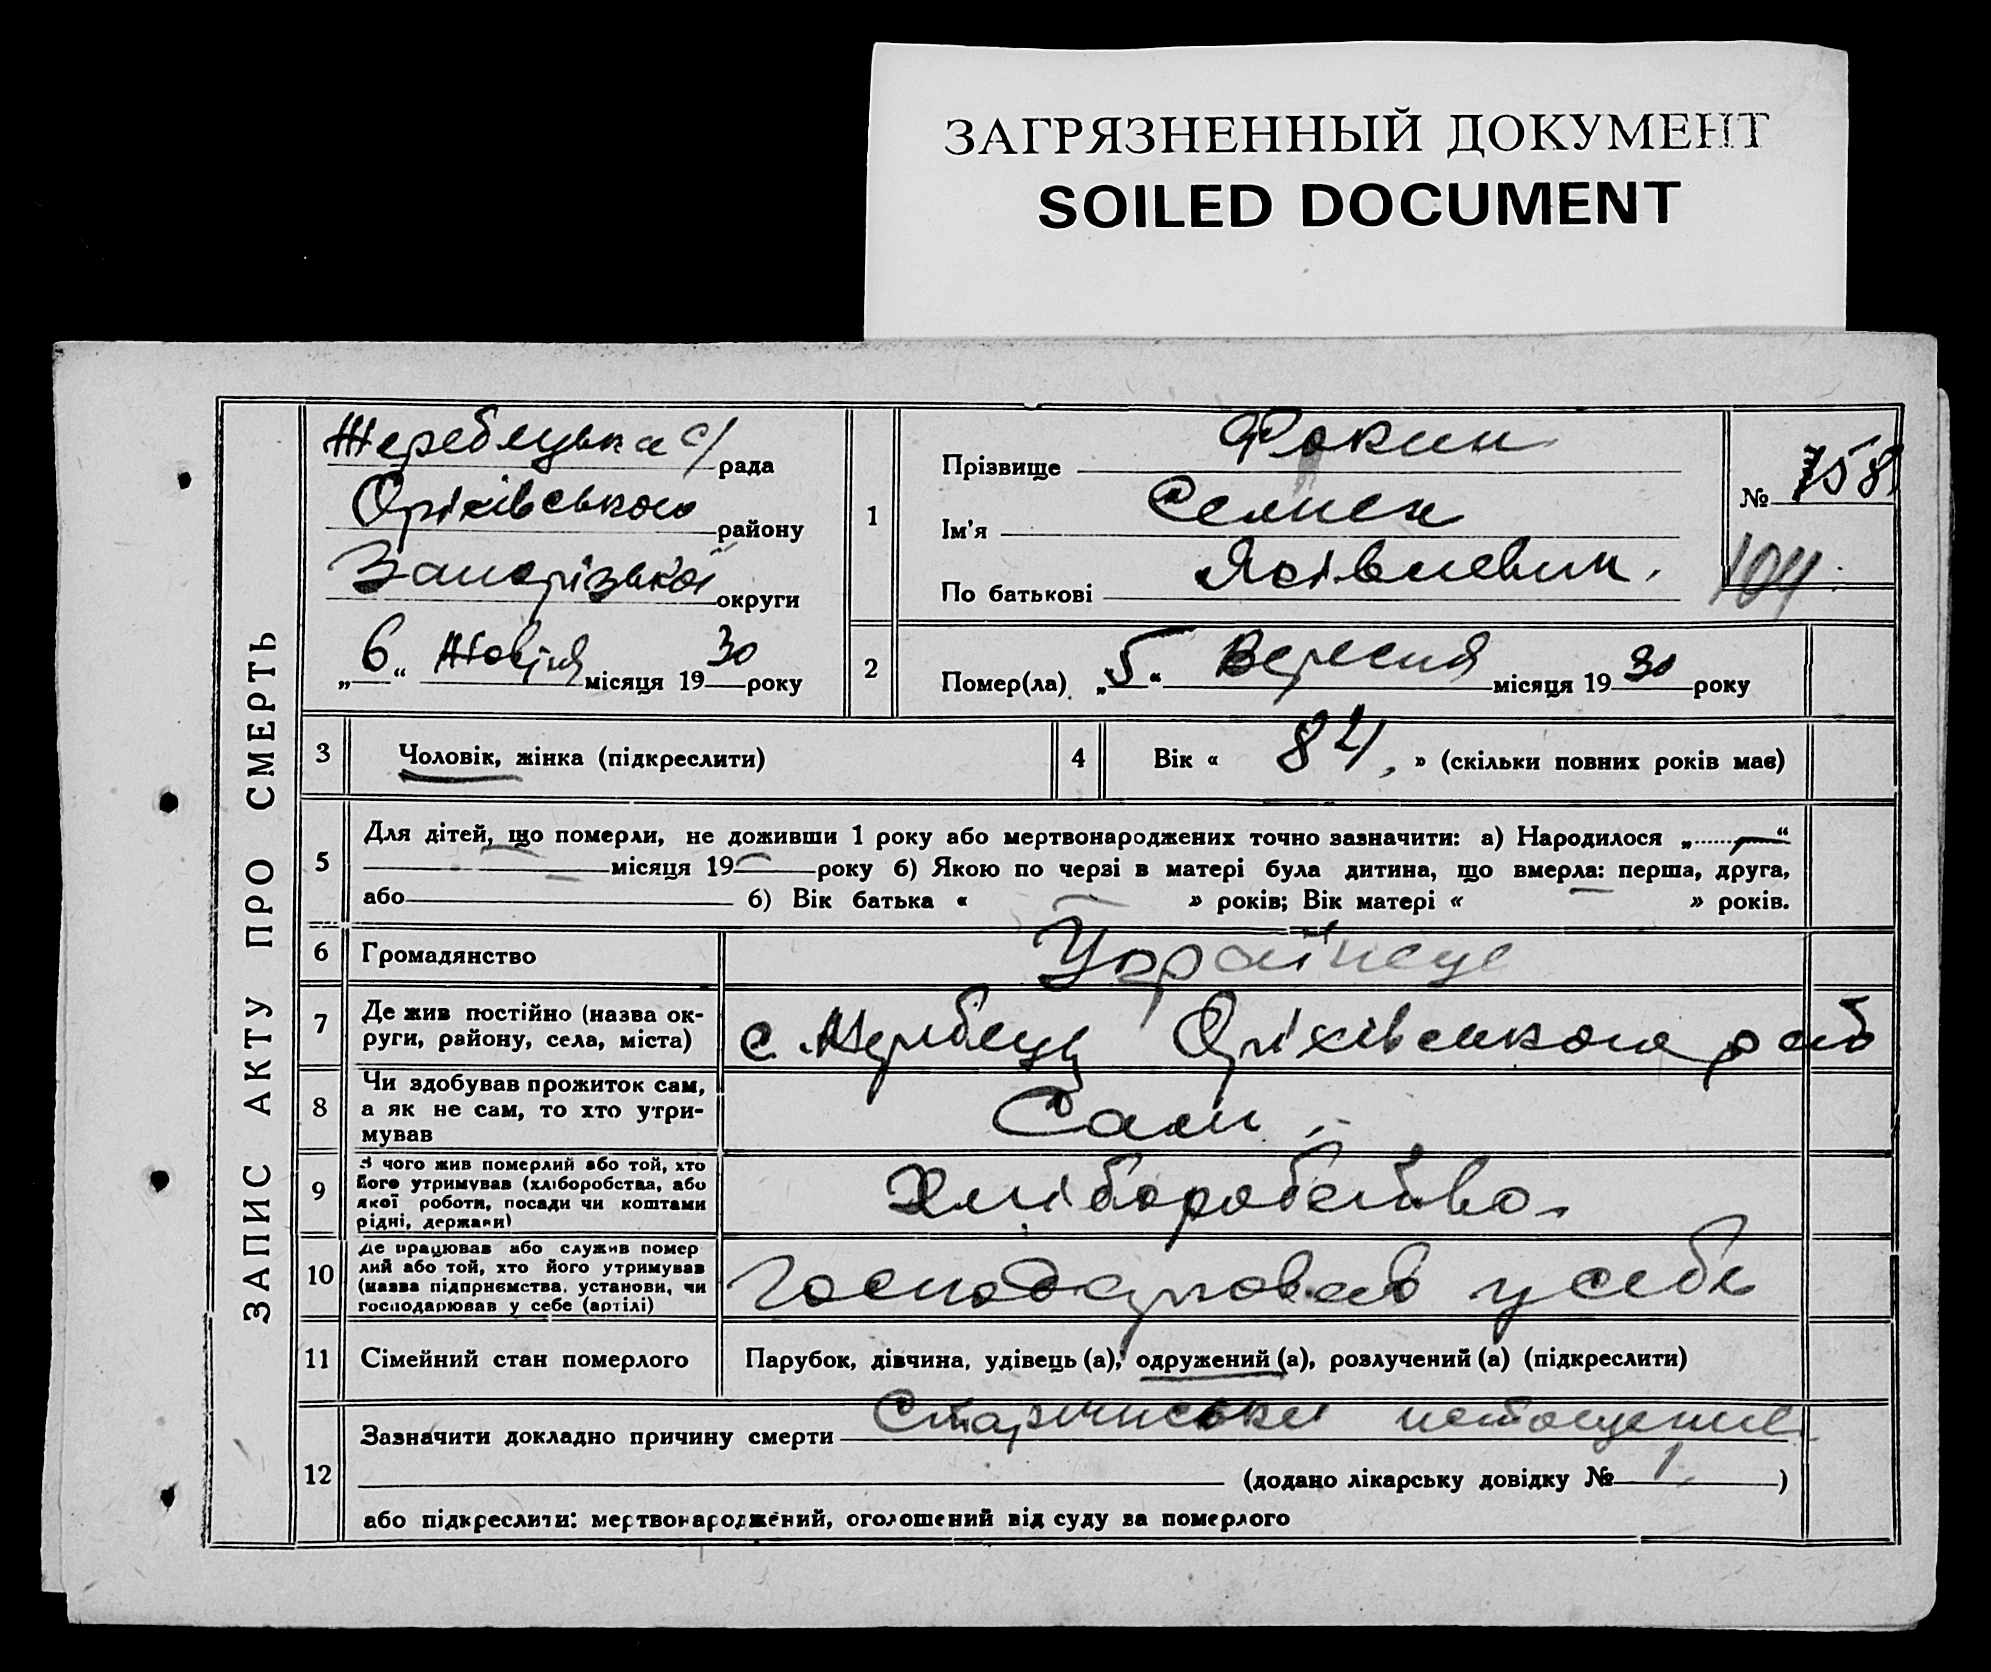 ЗАГРЯЗНЕННЫЙ ДОКУМЕНТ
SOILED DOCUMENT
ЗАПИС АКТУ ПРО СМЕРТЬ
Жеребецька с/рада
Оріхівського району
Запорізької округи
„6“ Жовтня місяця 1930 року
1
Прізвище Фокин
Ім'я Семен
По батькові
№ 758
104
2
Помер(ла) „5“ Вересня місяця 1930 року
3
Чоловік, жінка (підкреслити)
4
Вік « 84, » (скільки повних років має)
5
Для дітей, що померли, не доживши 1 року або мертвонароджених точно зазначити: а) Народилося „ — “
місяця 19 — року б) Якою по черзі в матері була дитина, що вмерла: перша, друга,
або б) Вік батька « — » років; Вік матері « — » років.
6
Громадянство
Українець
7
Де жив постійно (назва ок-
руги, району, села, міста)
с. Жеребець Оріхівського рай
8
Чи здобував прожиток сам,
а як не сам, то хто утри-
мував
Сам.
9
З чого жив померлий або той, хто
його утримував (хліборобства, або
якої роботи, посади чи коштами
рідні, держави)
Хліборобство.
10
Де працював або служив помер
лий або той, хто його утримував
(назва підприємства, установи, чи
господарював у себе (артілі)
Господарював у себе
11
Сімейний стан померлого
Парубок, дівчина, удівець (а), одружений (а), розлучений (а) (підкреслити)
12
Зазначити докладно причину смерти
(додано лікарську довідку № 1 )
або підкреслити: мертвонароджений, оголошений від суду за померлого